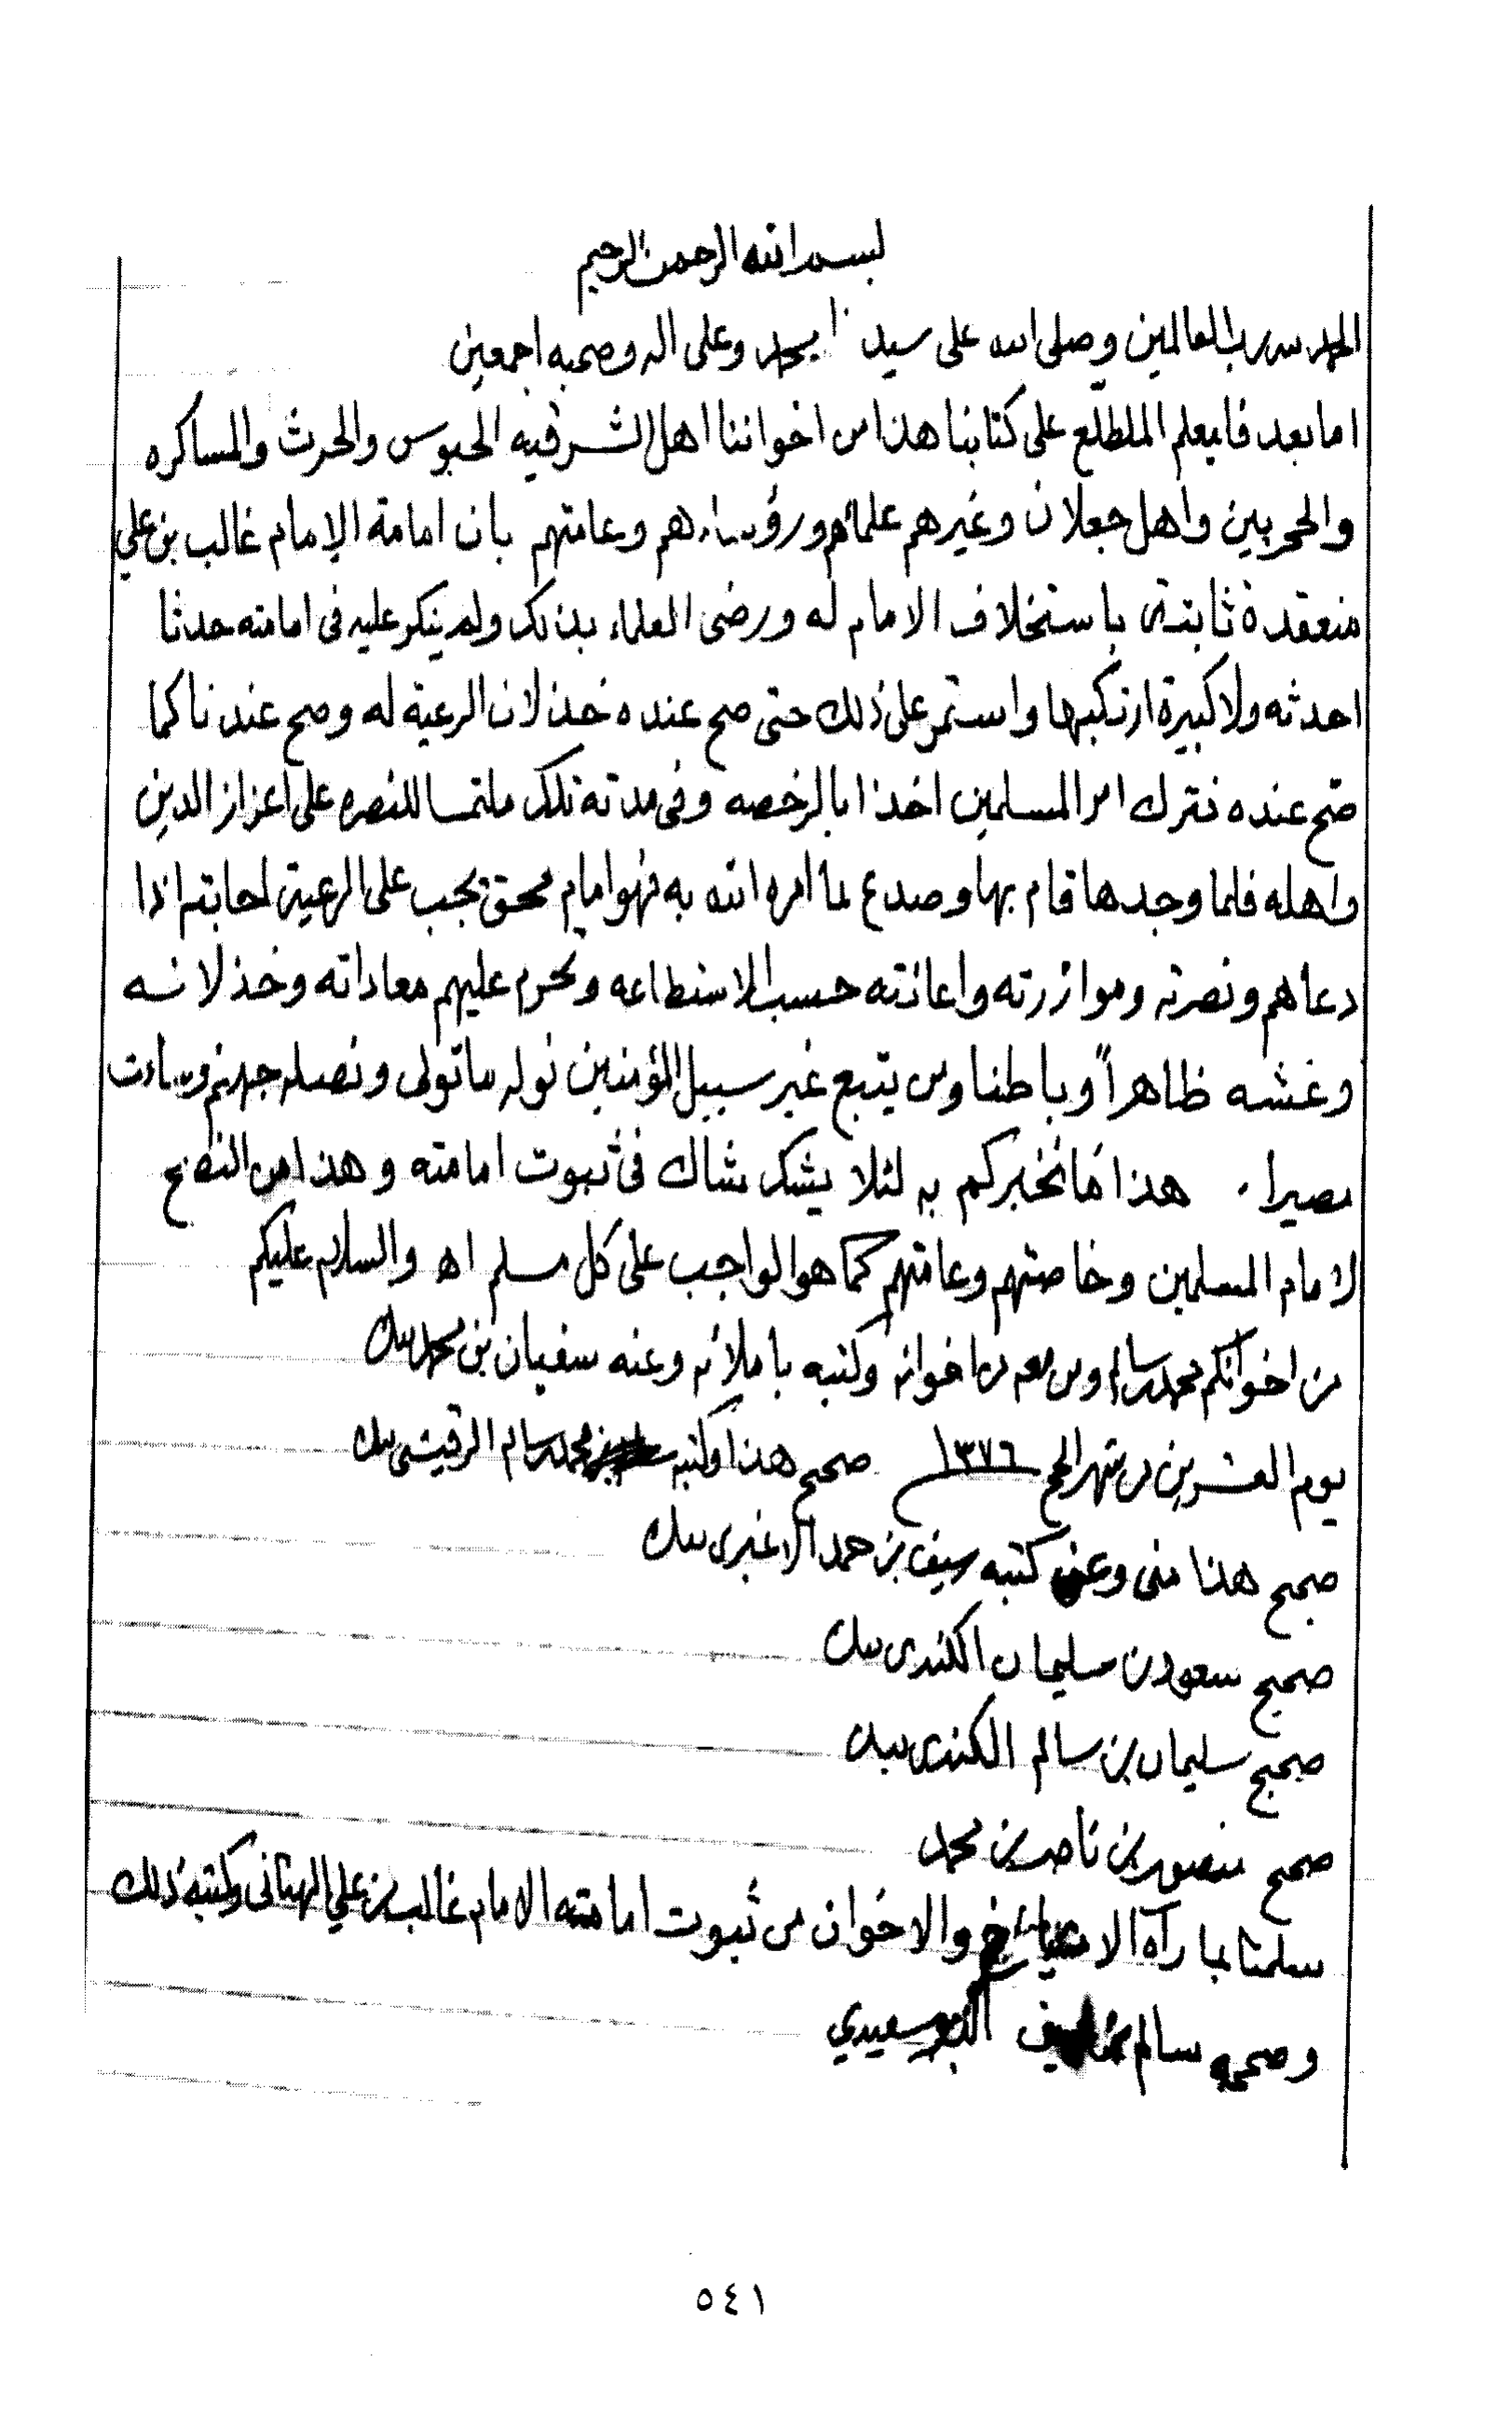 بسم الله الرحمن الرحيم
الحمد لله رب العالمين وصلى الله على سيدنا محمد وعلى اله وصحبه اجمعين
اما بعد فليعلم المطلع على كتابنا هذا من اخواننا اهل الشرقيه الحبوس والحرث والمساكره
والحجريين واهل جعلان وغيرهم علمائهم ورؤساءهم وعامتهم بان امامة الإمام غالب بن علي
منعقدة ثابتة باستخلاف الامام له ورضى العلماء بذلك ولم ينكر عليه في امامته حدثا
احدثه ولا كبيرة ارتكبها واستمر على ذلك حتى صح عنده خذلان الرعية له وصح عندنا كما
صح عنده فترك امر المسلمين اخذا بالرخصه وفى مدته تلك ملتمسا للنصره على اعزاز الدين
واهله فلما وجدها قام بها وصدع لما امره الله به فهو امام محق تجب على الرعية اجابته اذا
دعاهم ونصرته وموازرته واعانته حسب الاستطاعه وتحرم عليهم معاداته وخذلانه
وغشه ظاهراً وباطنا ومن يتبع غير سبيل المؤمنين نوله ما تولى ونصله جهنم وساءت
مصيرا . هذا ما نخبركم به لئلا يشك شاك فى ثبوت امامته وهذا من النصح
لامام المسلمين وخاصتهم وعامتهم كما هو الواجب على كل مسلم اه والسلام عليكم
من اخوانكم محمد بن سالم ومن معه من اخوانه وكتبه باملائه وعنه سفيان بن محمد بيده
يوم العشرين من شهر الحج ١٣٧٦ صحيح هذا وكتبه محمد بن سالم الرقيشى بيده
صحيح هذا منى وعني كتبه سيف بن حمد الاغبرى بيده
صحيح سعود بن سليمان الكندى بيده
صحيح سليمان بن سالم الكندى بيده
صحيح منصور بن ناصر بن محمد
سلمنا بما رآه الاشياخ والاخوان من ثبوت امامته الامام غالب بن علي الهنائى وكتبه ذلك
وصححه سالم بن سيف البوسعيدي
٥٤١